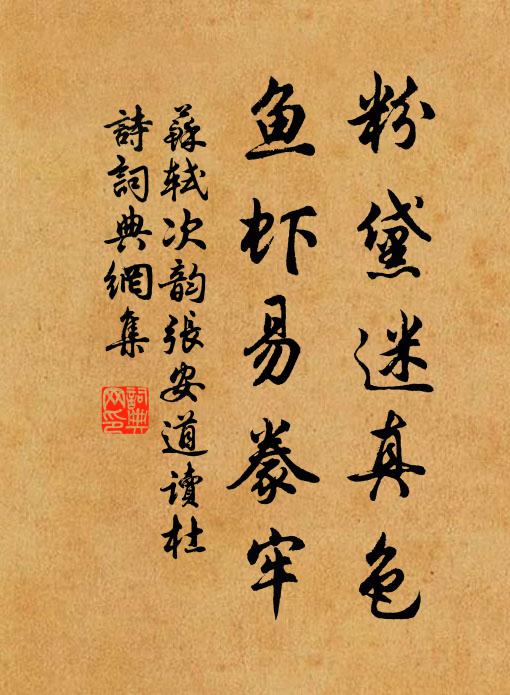 粉黛迷真色
鱼虾易豢牢
蘇轼次韵張安道讀杜
詩詞典網集
詞典网印